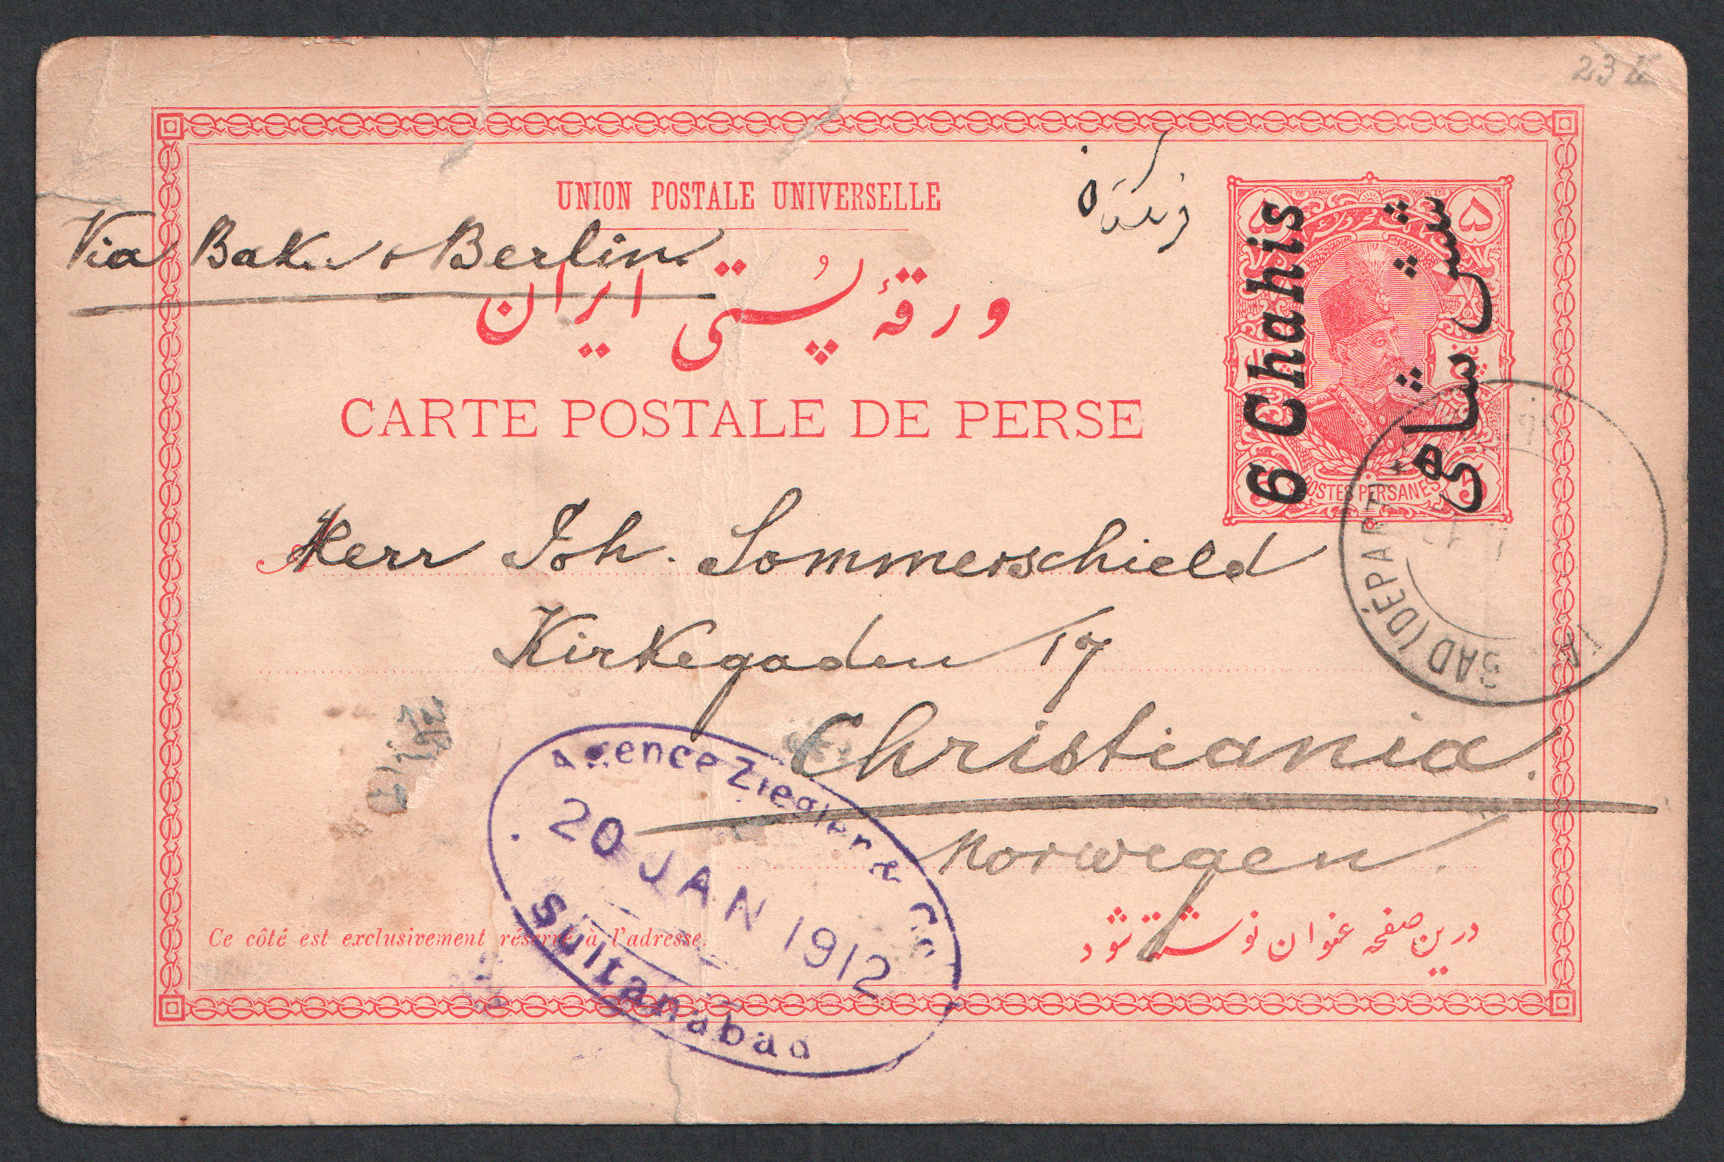 UNION POSTALE UNIVERSELLE
Via Baku & Berlin
ورقهٔ پُستی ایران
CARTE POSTALE DE PERSE
۵ ۵
6 Chahis
شش شاهی
POSTES PERSANES
5
Herr Joh. Sommerschield
Kirkegaden 17
Christiania.
Norwegen.
BAD (DÉPART)
Agence Ziegler & Co
20 JAN 1912
Sultanabad
Ce côté est exclusivement réservé à l'adresse.
درین صفحه عنوان نوشته شود